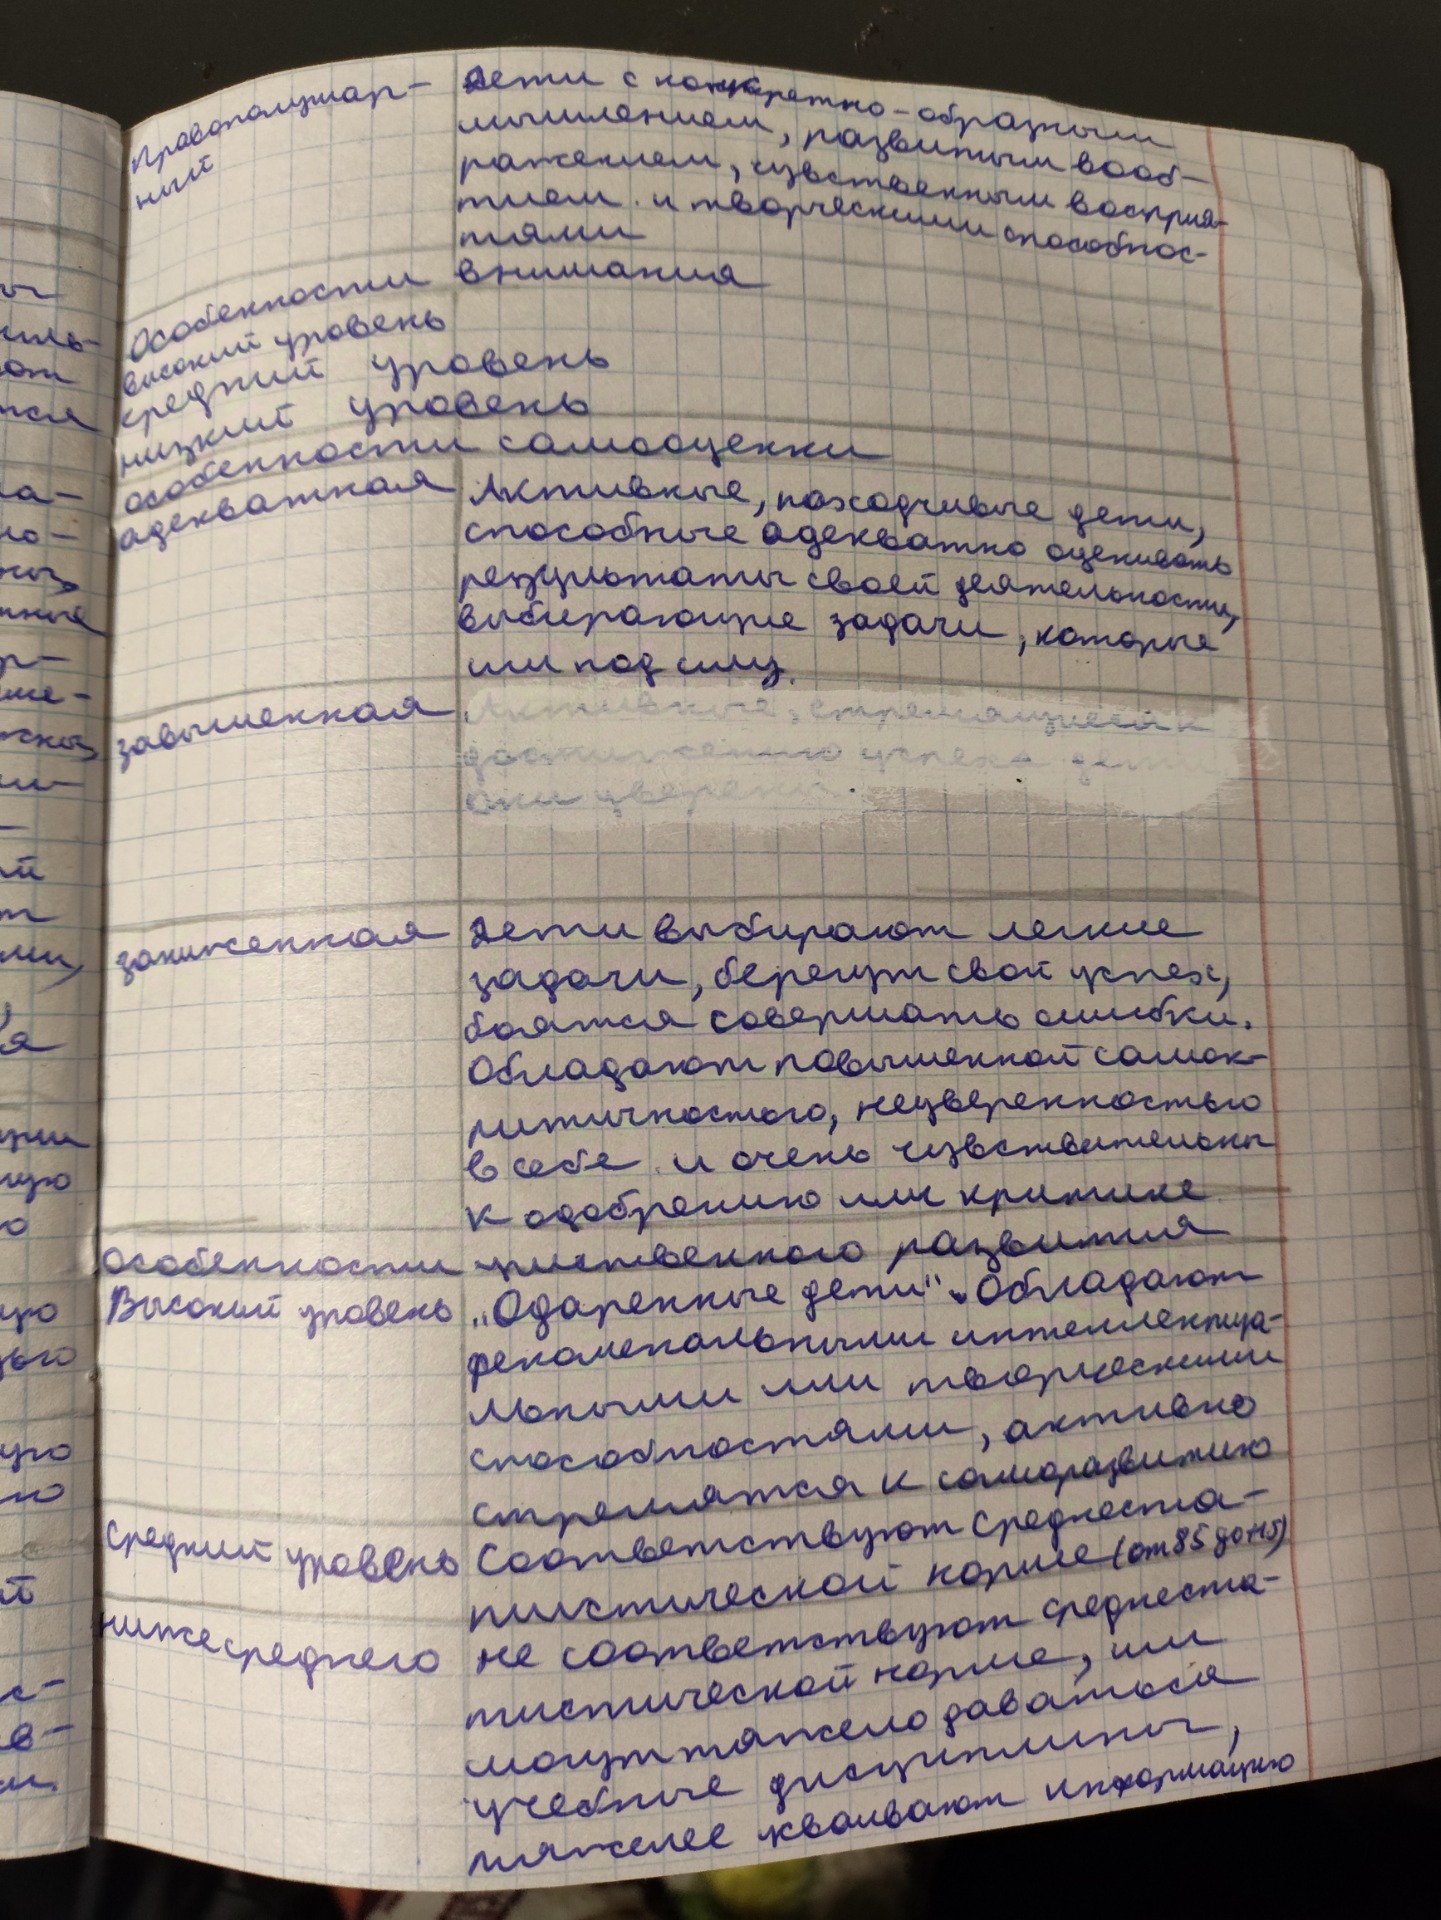 Правополушар- Дети с конкретно-образным
ный мышлением, развитым вооб-
ражением, чувственным восприя-
тием и творческими способнос-
тями
Особенности внимания
высокий уровень
средний уровень
низкий уровень
особенности самооценки
адекватная Активные, находчивые дети,
способные адекватно оценивать
результаты своей деятельности,
выбирающие задачи, которые
им под силу.
завышенная Активные, стремящиеся к
достижению успеха дети
они уверены.
заниженная Дети выбирают легкие
задачи, берегут свой успех,
боятся совершать ошибки.
Обладают повышенной самок-
ритичностью, неуверенностью
в себе и очень чувствительны
к одобрению или критике
особенности умственного развития
Высокий уровень „Одаренные дети". Обладают
феноменальными интеллектуа-
льными или творческими
способностями, активно
стремятся к саморазвитию
Средний уровень Соответствуют среднеста-
тистической норме (от 85 до 115)
ниже среднего не соответствуют среднеста-
тистической норме, им
могут тяжело даваться
учебные дисциплины,
тяжелее информацию